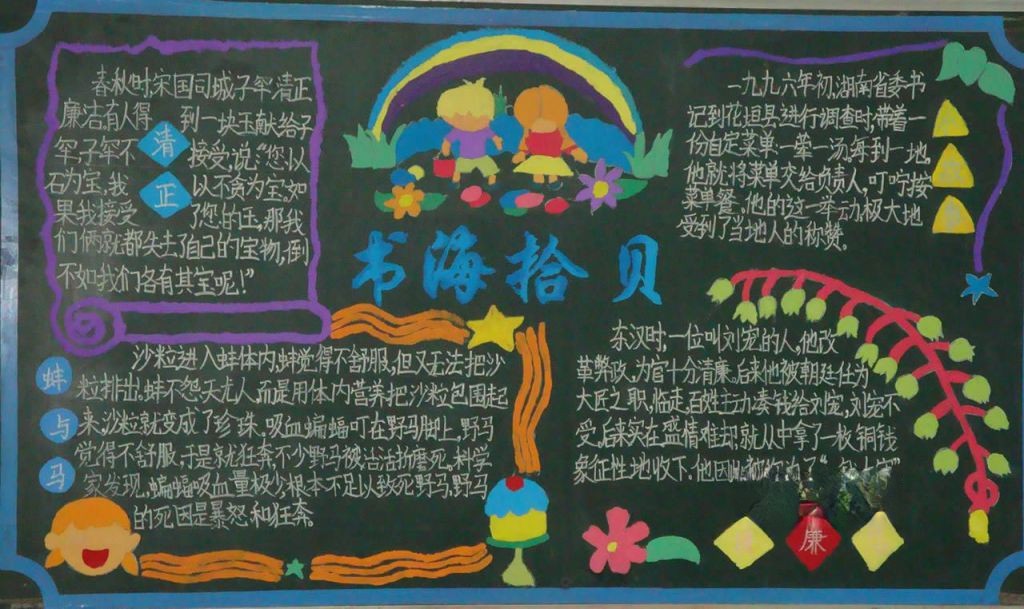 书海拾贝
春秋时,宋国司城子罕清正
廉洁,有人得 到一块玉献给子
罕,子罕不 接受,说:“您以
石为宝,我 以不贪为宝,如
果我接受 了您的玉,那我
们俩就都失去了自己的宝物,倒
不如我们各有其宝呢!”
清
正
一九九六年初,湖南省委书
记到花垣县进行调查时,带着一
份自定菜单:一荤一汤,每到一地,
他就将菜单交给负责人,叮咛按
菜单办。他的这一举动极大地
受到了当地人的称赞。
蚌
与
马
沙粒进入蚌体内,蚌觉得不舒服,但又无法把沙
粒排出,蚌不怨天尤人,而是用体内营养把沙粒包围起
来,沙粒就变成了珍珠。吸血蝙蝠叮在野马脚上,野马
觉得不舒服,于是就狂奔,不少野马被活活折磨死。科学
家发现,蝙蝠吸血量极少,根本不足以致死野马,野马
的死因是暴怒和狂奔。
东汉时,一位叫刘宠的人,他改
革弊政,为官十分清廉。后来他被朝廷任为
大匠之职,临走,百姓主动凑钱给刘宠,刘宠不
受,后来实在盛情难却,就从中拿了一枚铜钱
象征性地收下。他因此被
廉